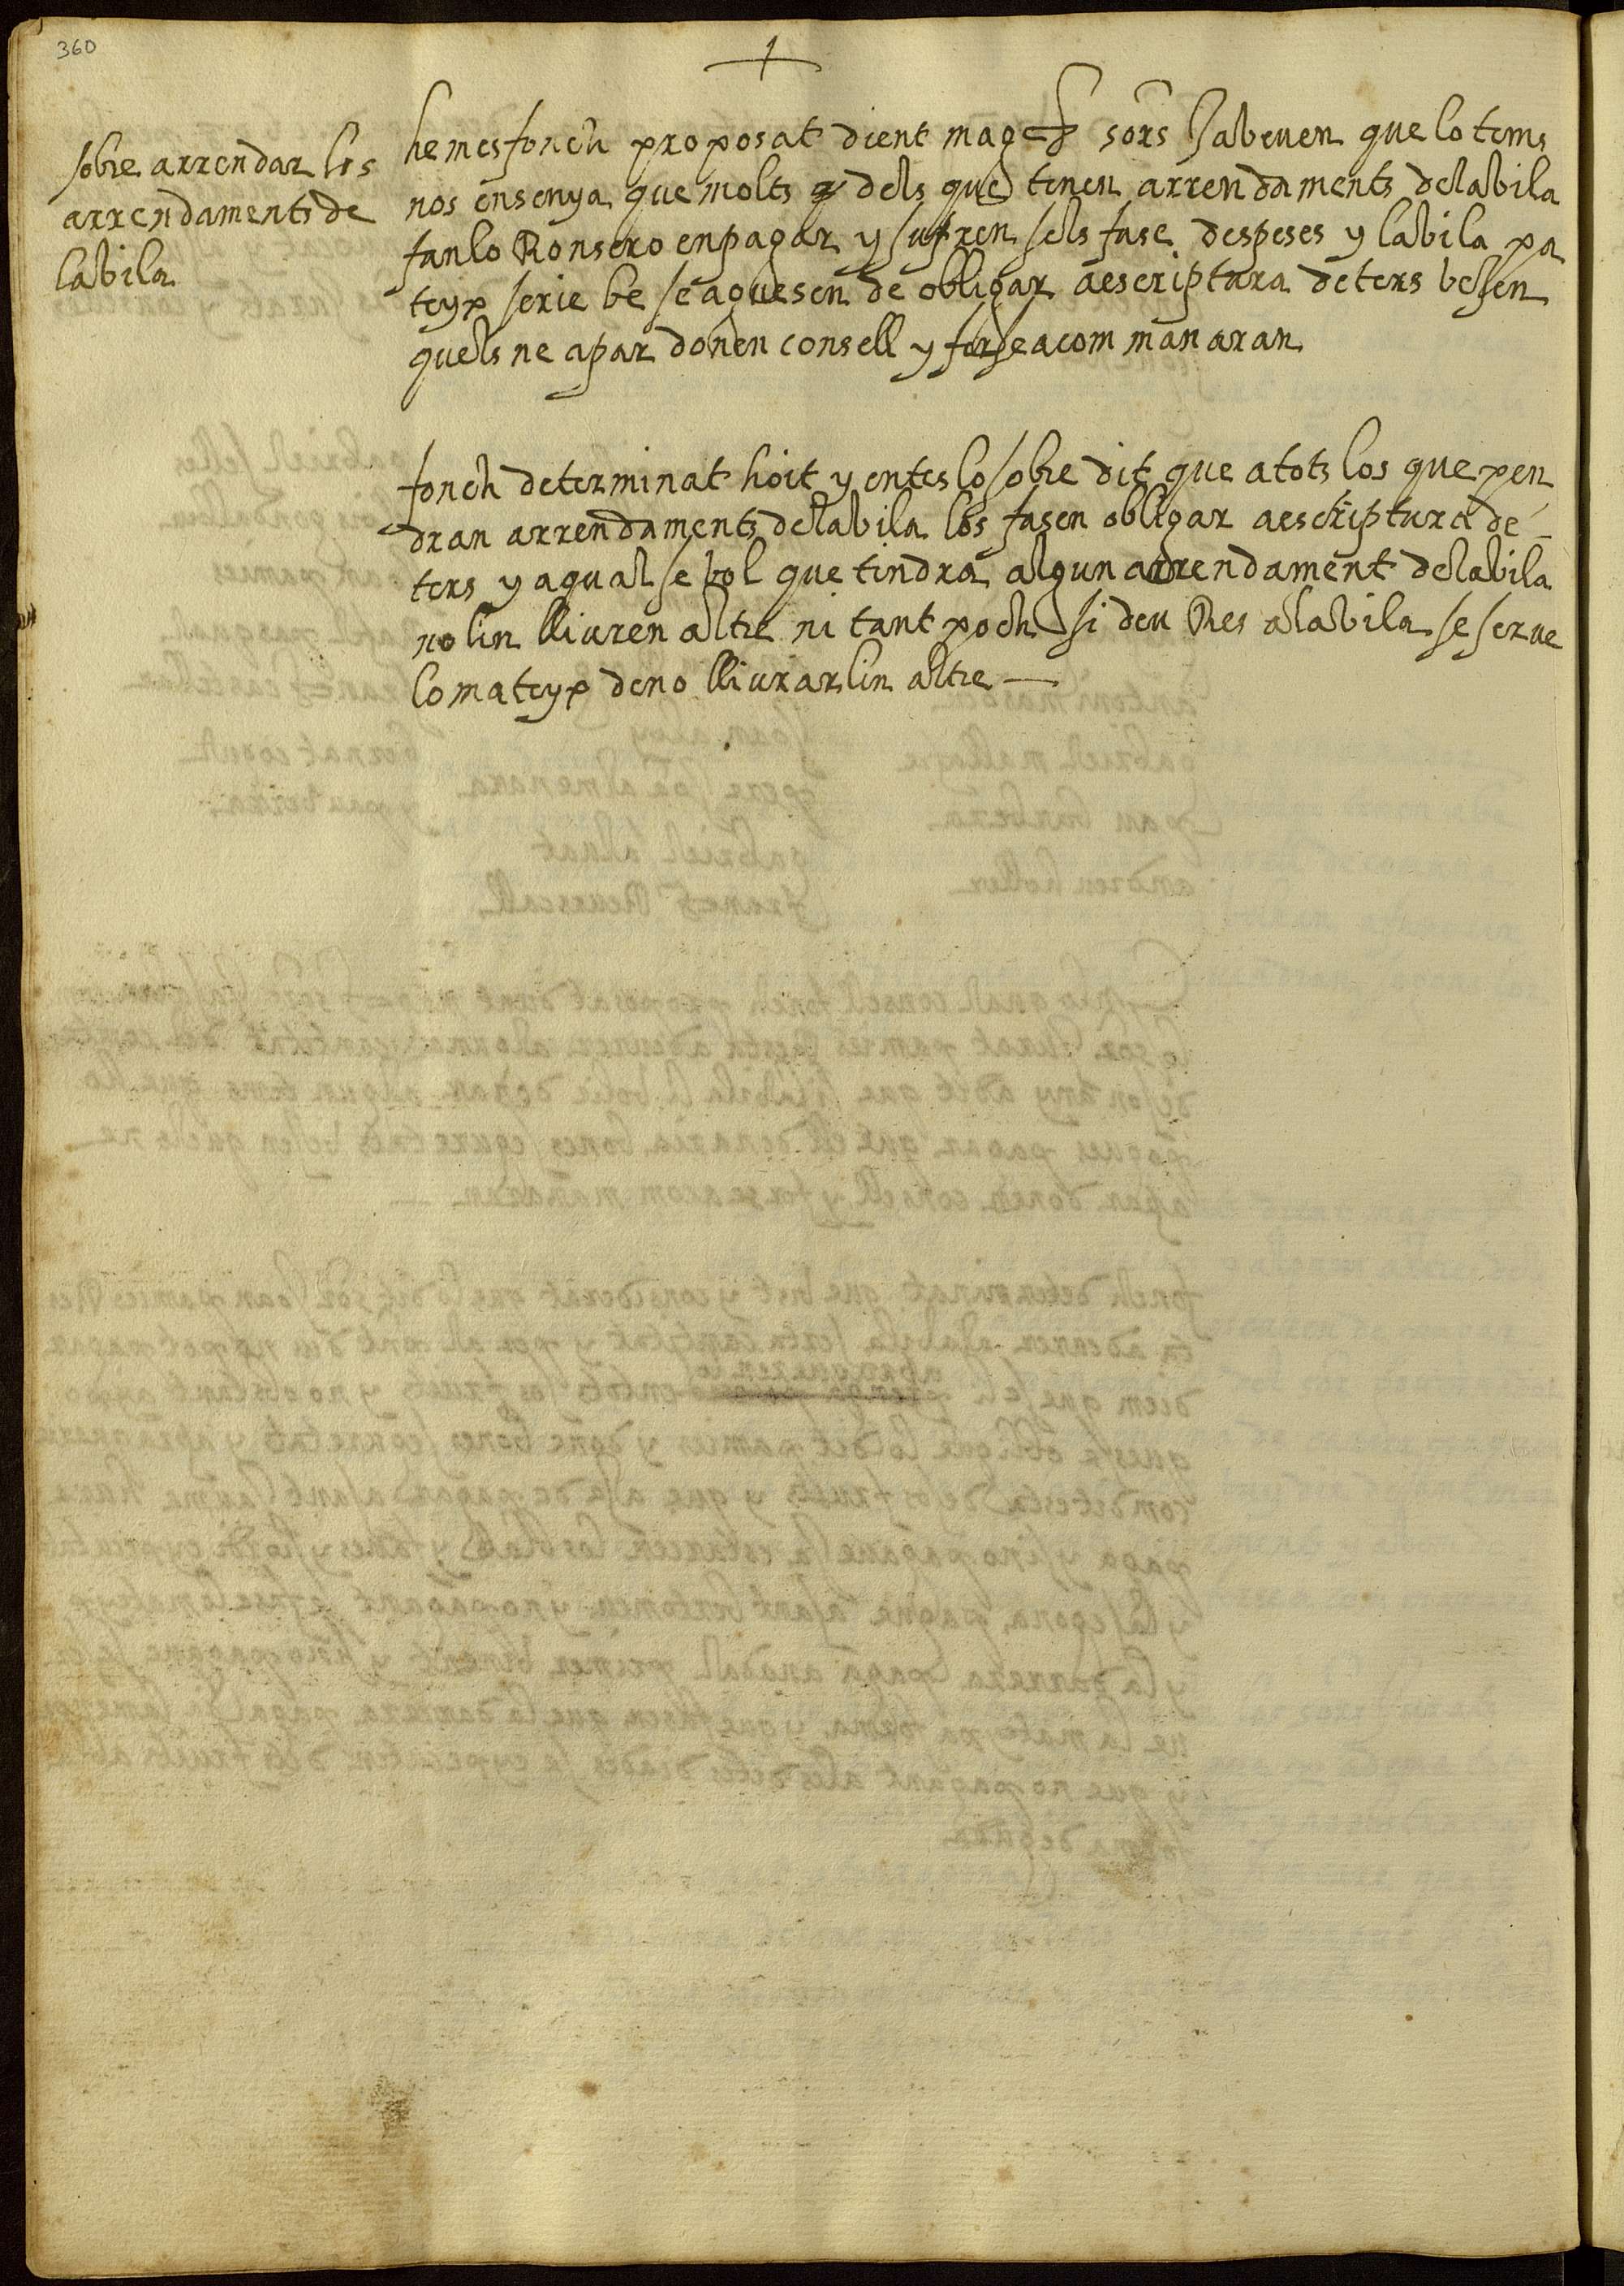 360
sobre arrendar los
arrendaments de
la bila
he mes fonch proposat dient magchs sors ja beuen que lo tems
nos ensenya que molts q dels que tenen arrendaments de la bila
fan lo Ronsero en pagar y sufren sels fase despeses y la bila pa
teyx serie be se aguesen de obligar a escriptura de ters bejen
quels ne apar donen consell y ferse a com manaran
fonch determinat hoit y entes lo sobre dit que a tots los que pen
dran arrendaments de la bila los fasen obligar a escriptura de
ters y a qual se bol que tindra algun arrendament de la bila
no lin lliuren altre ni tant poch si deu Res a la bila se serve
lo mateyx de no lliurarlin altre